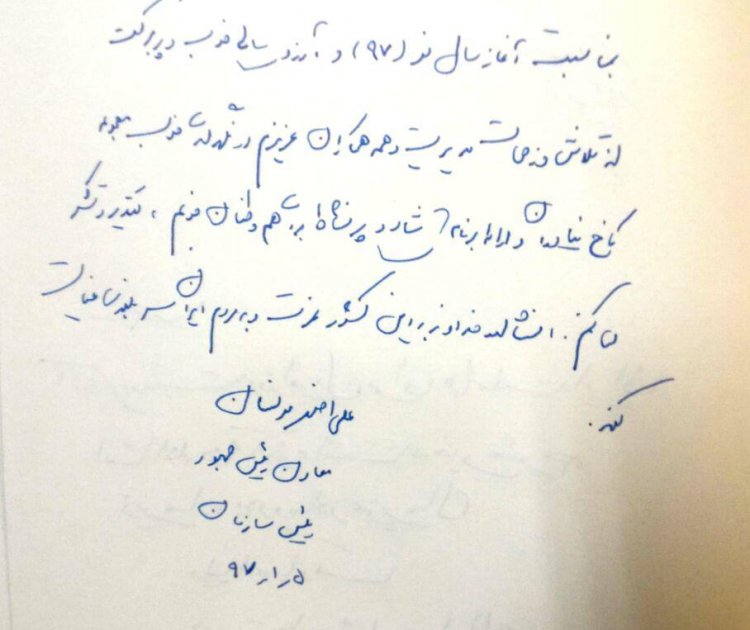 بمناسبت آغاز سال نو (۹۷) و آرزوی سالی خوب و پربرکت
از تلاش و زحمات مدیریت و همه همکاران عزیزم در نگهداری خوب مجموعه
کاخ نیاوران و ارائه برنامه شاد و پرنشاط برای هم وطنان خوبم، تقدیر و تشکر
می کنم. انشاالله خداوند برای این کشور عزت و به مردم ایران سربلندی عنایت
کند.
علی اصغر مونسان
معاون رئیس جمهور
رئیس سازمان
۵ر۱ر۹۷